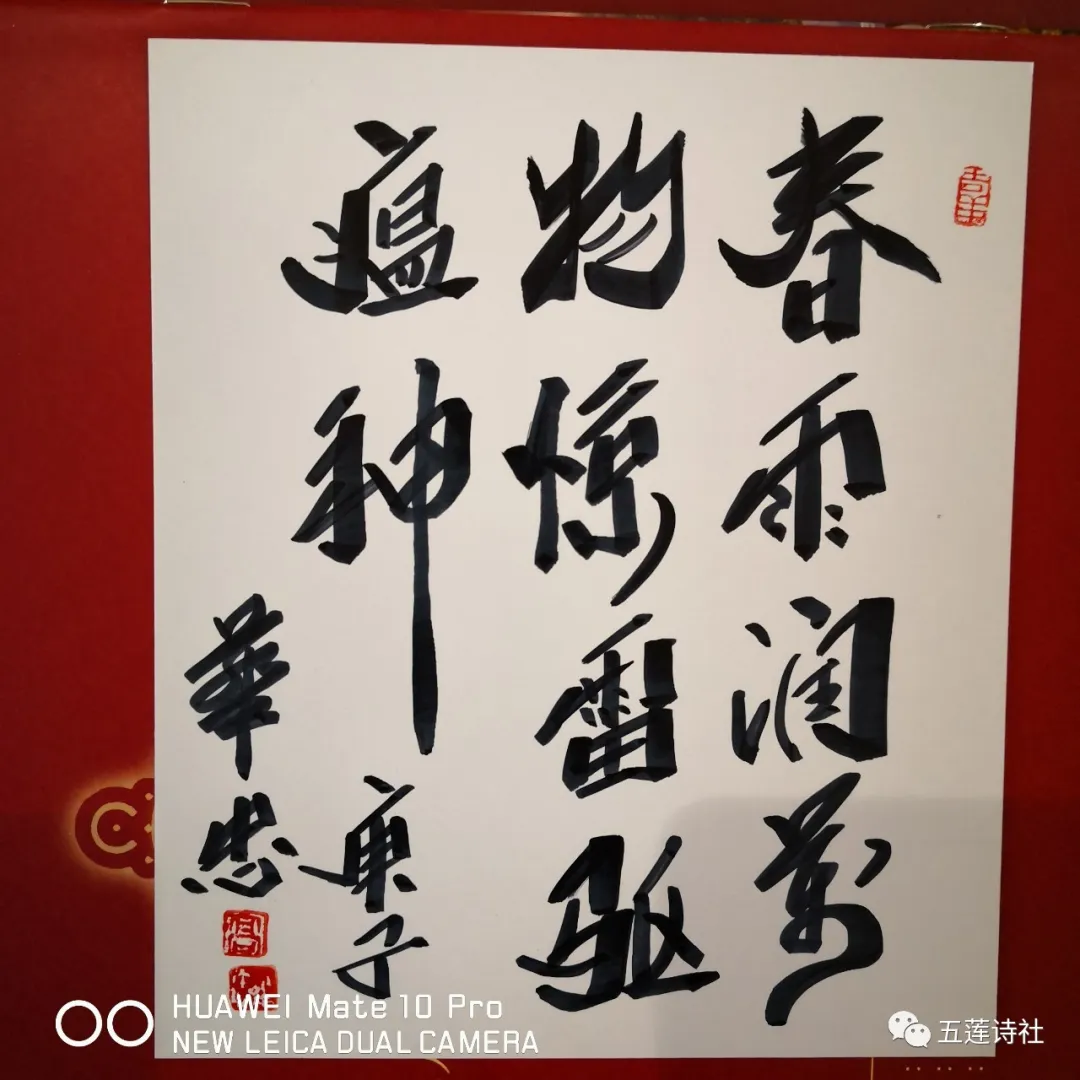 春雨润萬
物惊雷驱
瘟神
庚子
華忠
HUAWEI Mate 10 Pro
NEW LEICA DUAL CAMERA
五莲诗社